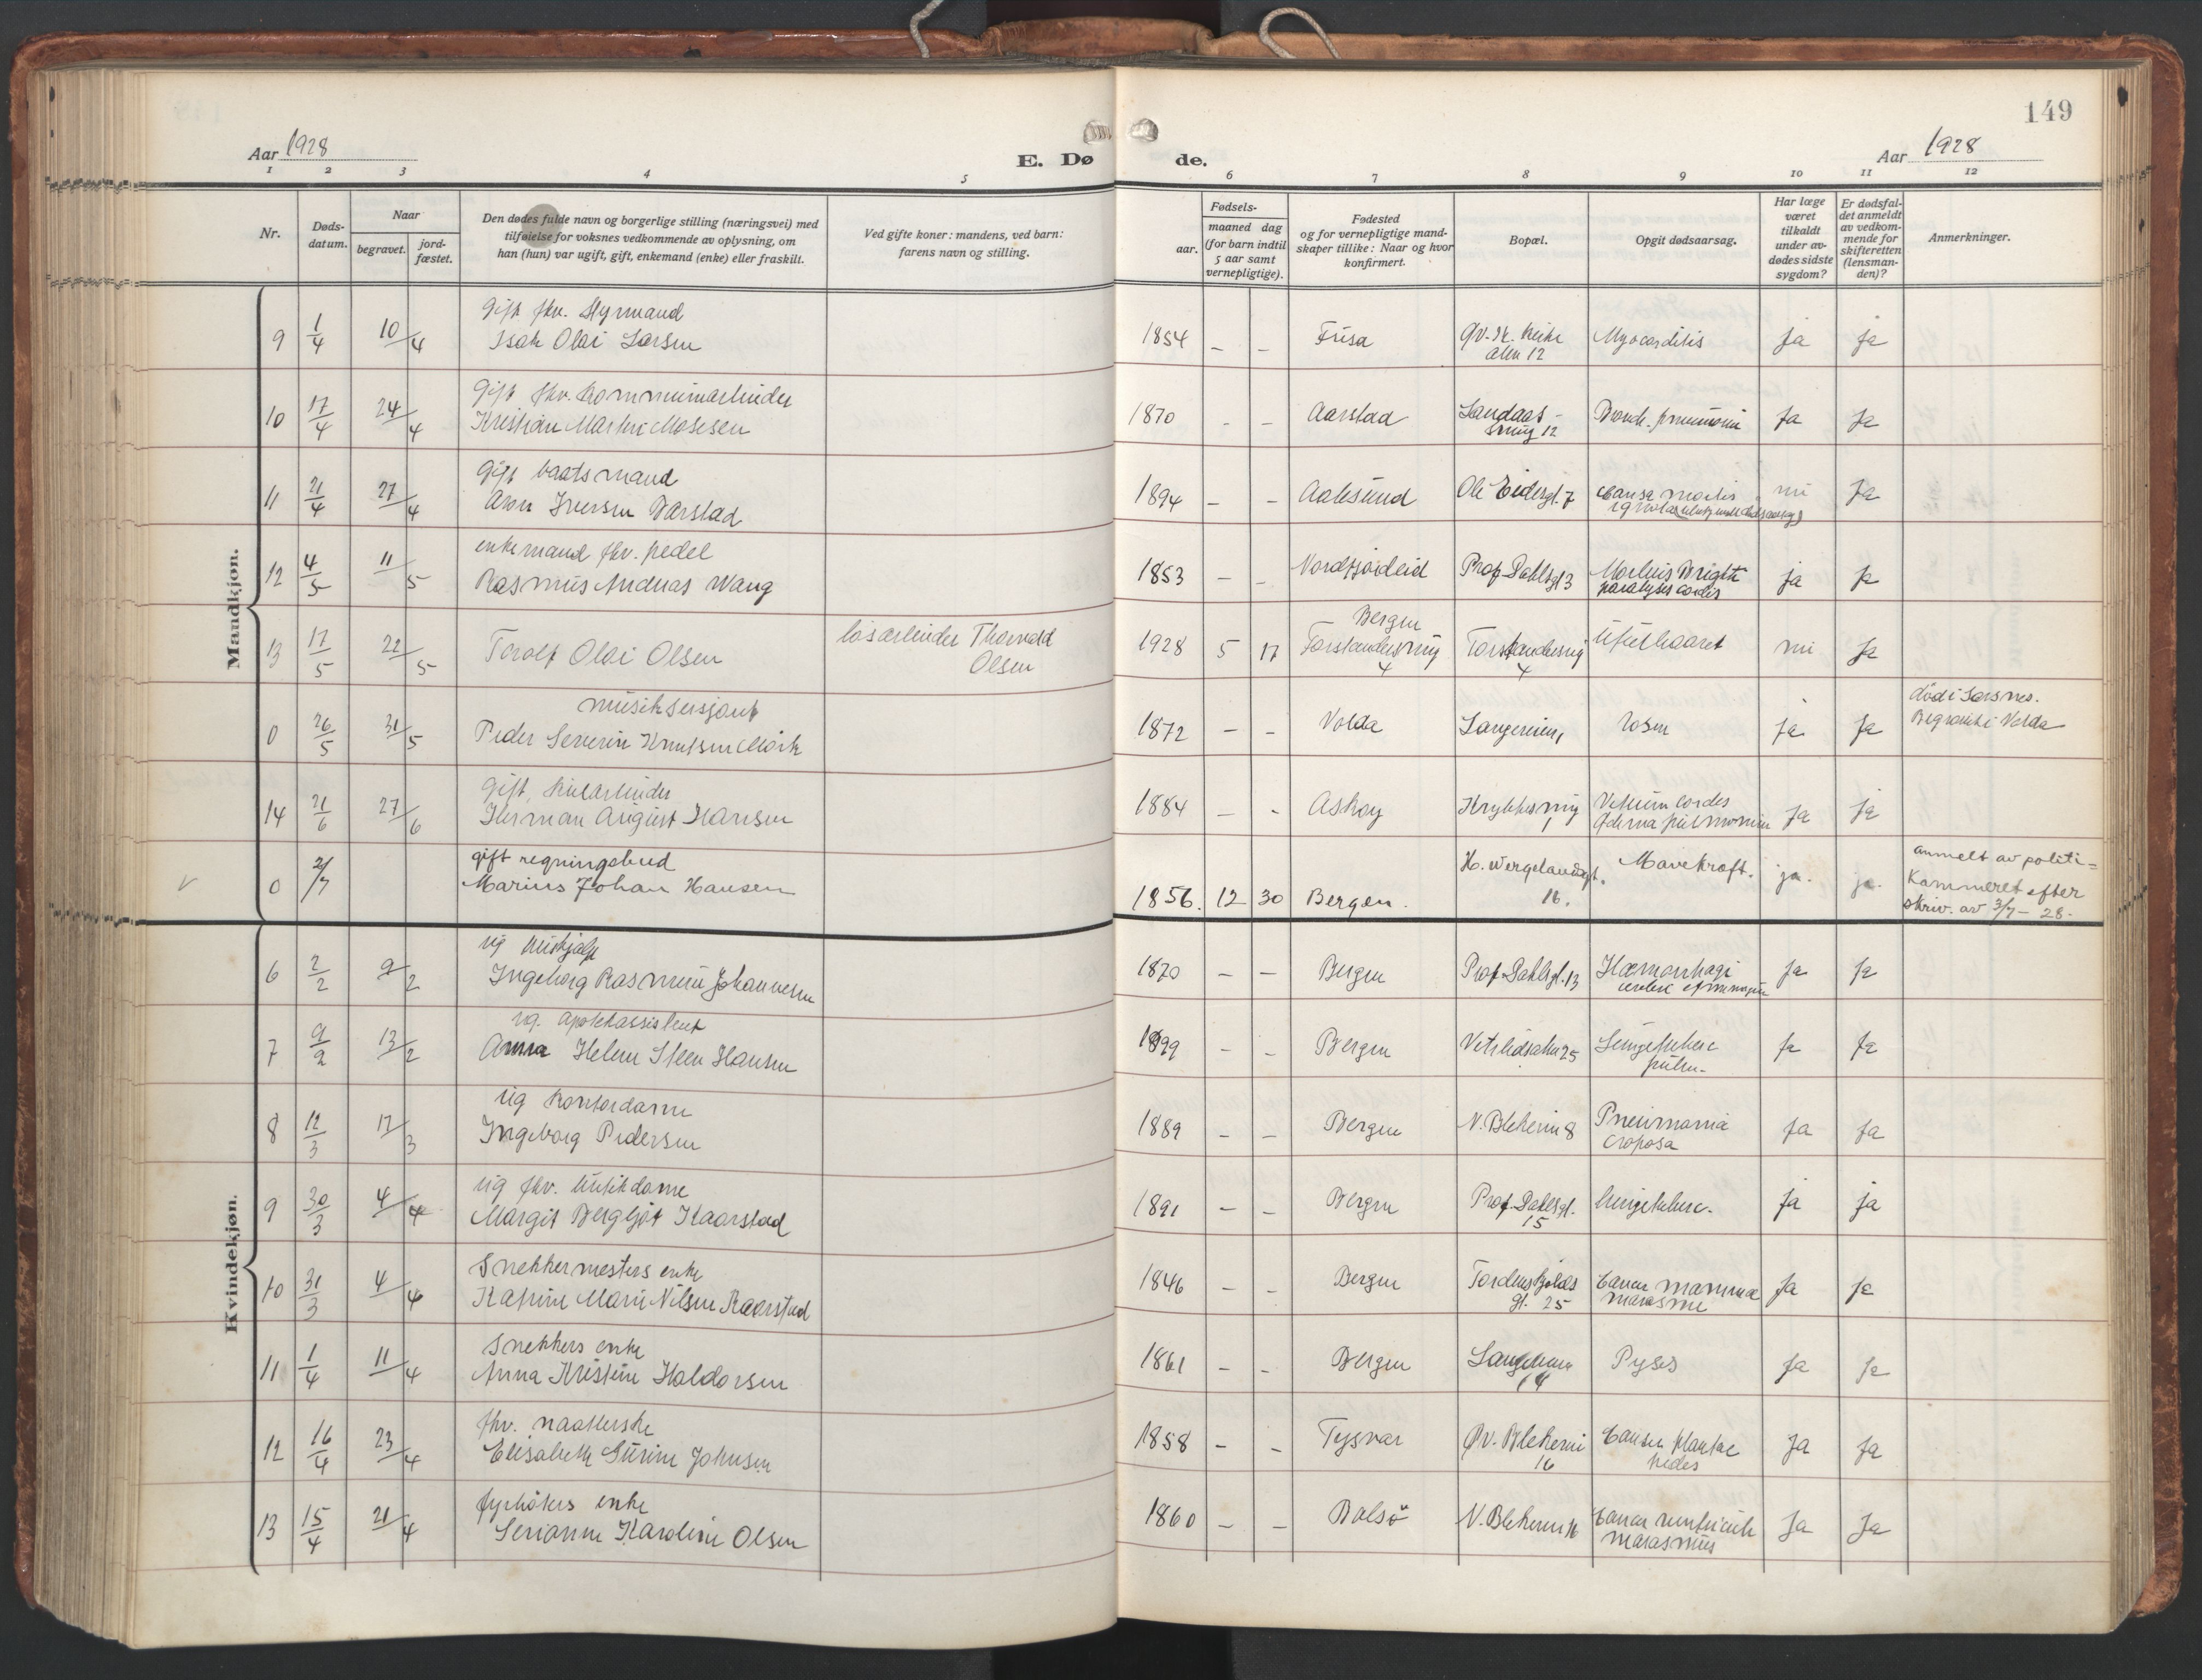 149
Aar 1928
E. Dø
de.
Aar 1928
1 2 3 4 5 6 7 8 9 10 11 12
Nr.
Døds-
datum.
Naar
begravet.
jord-
fæstet.
Den dødes fulde navn og borgerlige stilling (næringsvei) med
tilføielse for voksnes vedkommende av oplysning, om
han (hun) var ugift, gift, enkemand (enke) eller fraskilt.
Ved gifte koner: mandens, ved barn:
farens navn og stilling.
Fødsels-
aar.
maaned dag
(for barn indtil
5 aar samt
vernepligtige).
Fødested
og for vernepligtige mand-
skaper tillike: Naar og hvor
konfirmert.
Bopæl.
Opgit dødsaarsag.
Har læge
været
tilkaldt
under av-
dødes sidste
sygdom?
Er dødsfal-
det anmeldt
av vedkom-
mende for
skifteretten
(lensman-
den)?
Anmerkninger.
Mandkjøn.
gift fhv. Styrmand
9 1/4 10/4 Isak Olai Larsen 1854 - - Fusa Myocarditis ja ja
alm 12
Gift fhv.
10 17/4 24/4 Kristian Martin Mosesen 1870 - - Aarstad Landaas- Ja Ja
12
Gift baatsmand
11 21/4 27/4 Iversen 1894 - - Aalesund Ole Eidesgt. 7 causa mortis Ja
enkemand fhv. pedel
12 4/5 11/5 Rasmus Andreas Wang 1853 - - Nordfjordeid Prof. Dahlsgt 3 Morbus Brightii ja Ja
paralysis cordis
Bergen
13 17/5 22/5 Torolf Olai Olsen løsarbeider Thorvald 1928 5 17 Ja
Olsen
4 4
musiksersjant
0 26/5 31/5 Peder Severin Knutsen Mork 1872 - - Volda Rosen ja Ja
død i
Begravet i Volda
14 21/6 27/6 Herman August Hansen 1884 - - Askøy Vitium cordis Ja ja
1
gift regningsbud
v 0 2/7 Marius Johan Hansen 1856. 12 30 Bergen. H. Wergelandsgt. Mavekræft. ja. ja.
16.
anmelt av politi-
kammeret efter
skriv. av 3/7 - 28.
Kvindekjøn.
ug hushjælp
6 2/2 9/2 Ingeborg Johannesen 1870 - - Bergen Prof. Dahlsgt. 13 Hæmorrhagi Ja Ja
ug. apotekassistent
7 9/2 13/2 Anna Helene Steen Hansen 1899 - - Bergen 25 Lungetuberc Ja Ja
pulm.
ug kontordame
8 12/3 17/3 Ingeborg Pedersen 1889 - - Bergen N. Blekevei 8 Pneumonia Ja Ja
croposa
ug fhv. butikdame
9 30/3 4/4 Margit Bergljot Kaarstad 1891 - - Bergen Prof. Dahlsgt. lungetuberc. ja ja
15
Snekkermesters enke
10 31/3 4/4 Katrine Marie Nilsen Kaarstad 1846 - - Bergen Tordenskjolds Cancer mamma Ja Ja
gt. 25 marasme
Snekkers enke
11 1/4 11/4 Anna Kristine Haldorsen 1861 - - Bergen Ja Ja
14
fhv. naatlerske
12 16/4 23/4 Elisabeth Gurine Johnsen 1858 - - Tysvær Øv. Blekevei Cancer plantae Ja Ja
16 pedes
fyrbøters enke
13 15/4 21/4 Karoline Olsen 1860 - - Balsö N. Blekevei 16 Cancer ventriculi Ja Ja
marasmus